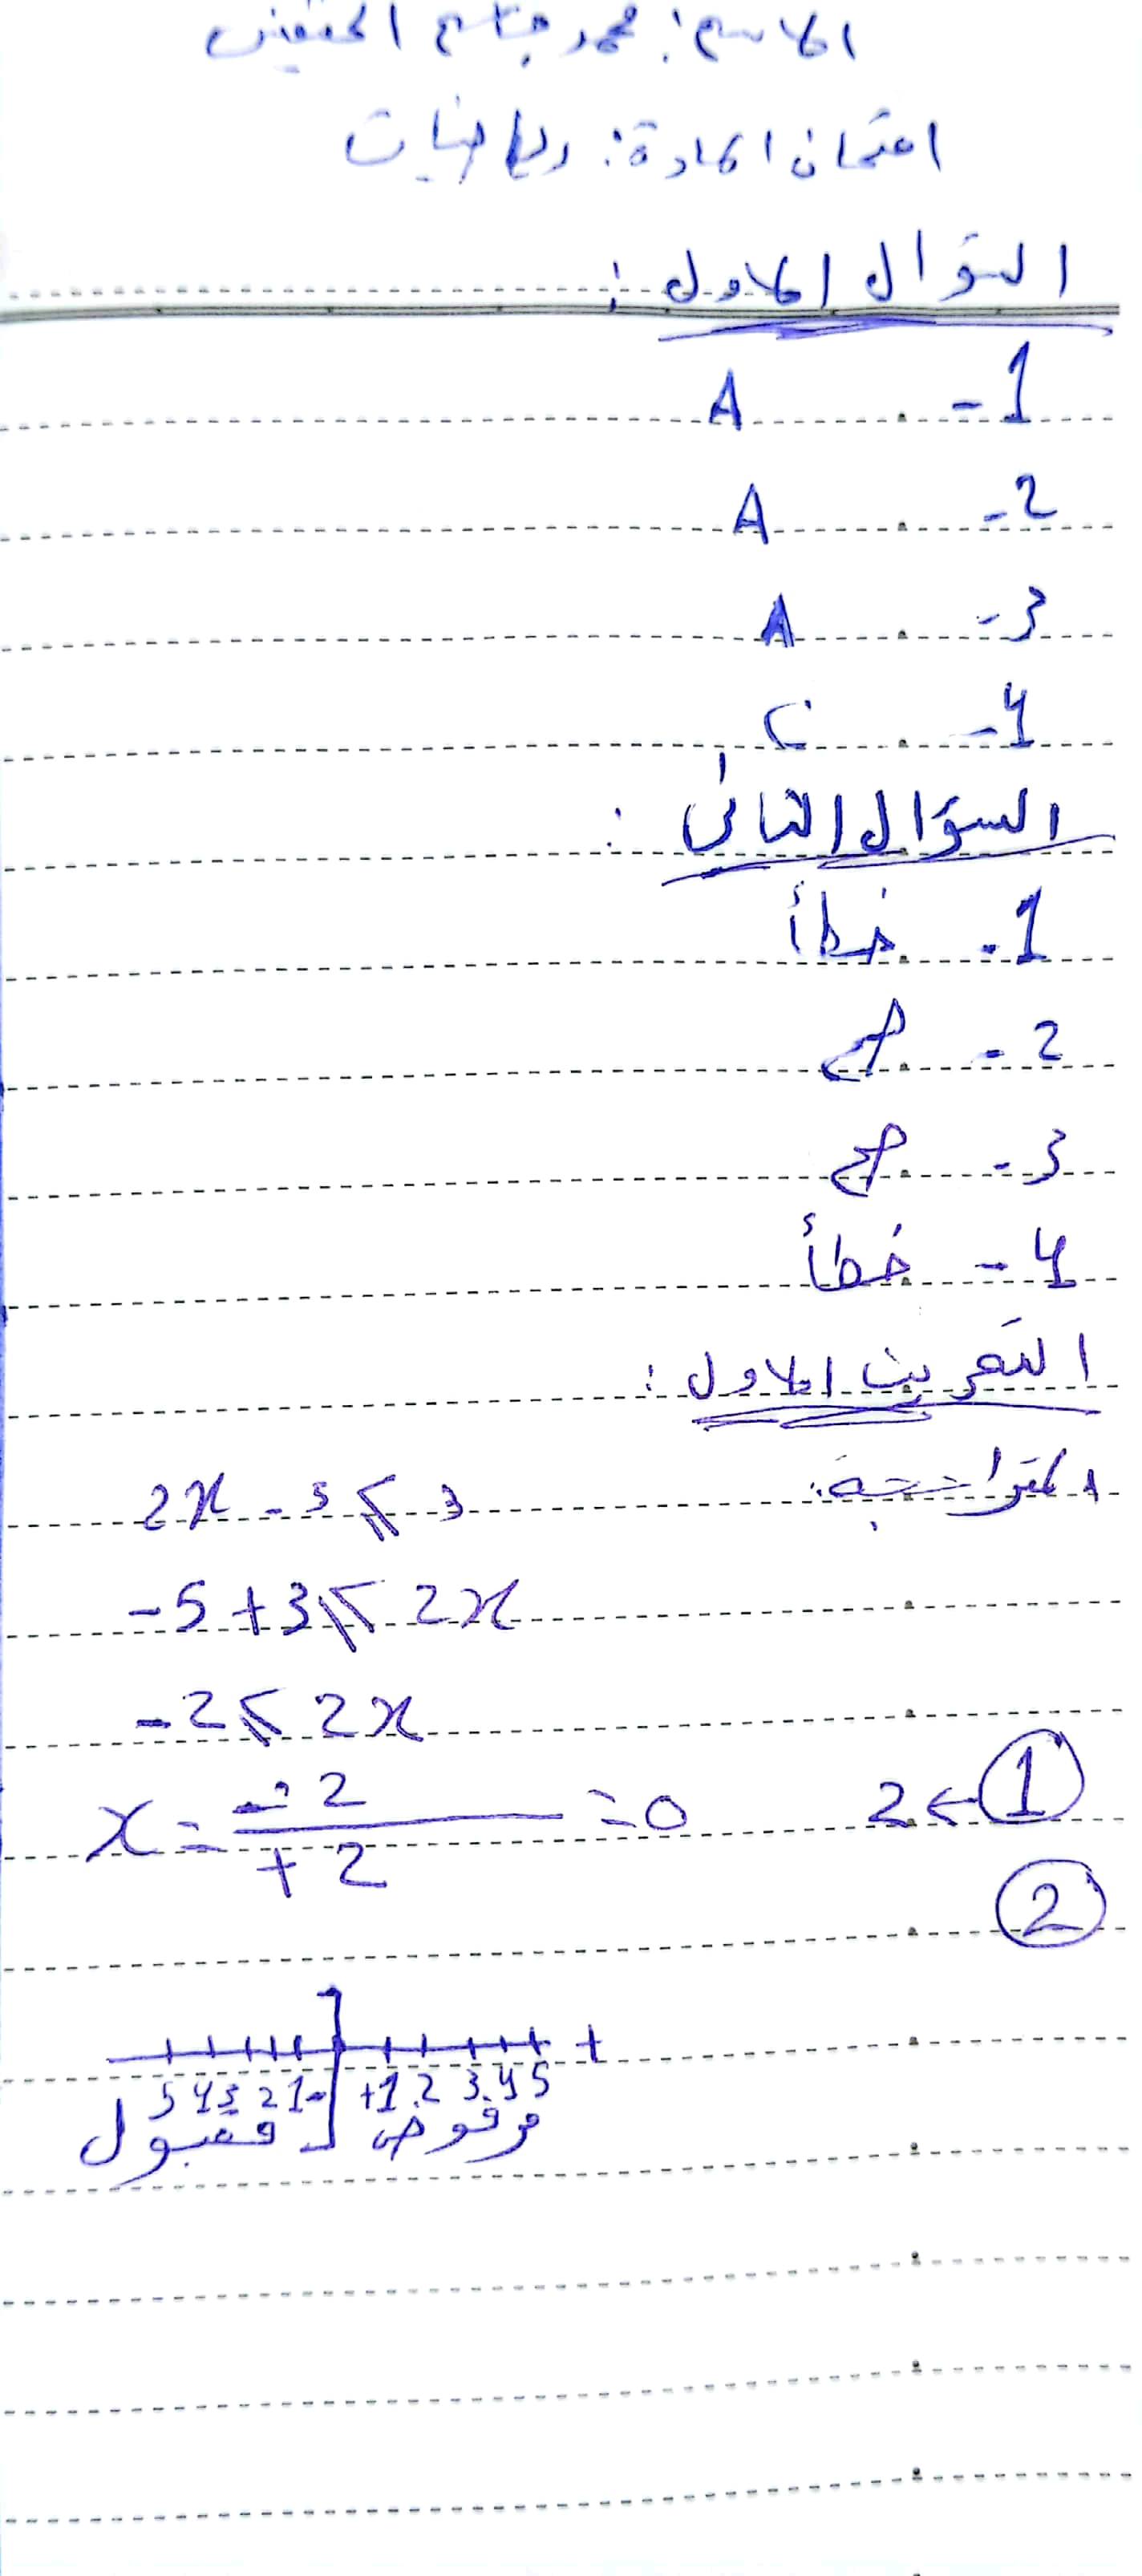 الاسم: محمد جاسم
امتحان المادة: رياضيات
السؤال الاول:
1- A
2- A
3- A
4- C
السؤال الثاني:
1- خطأ
2- صح
3- صح
4- خطأ
التمرين الاول:
المتراجحة:
2x - 5 ⩽ 3
-5 + 3 ⩽ 2x
-2 ⩽ 2x
① → 2 x = -2 / +2 = 0
②
+
5 4 3 2 1 - +1 2 3 4 5
مقبول مرفوض